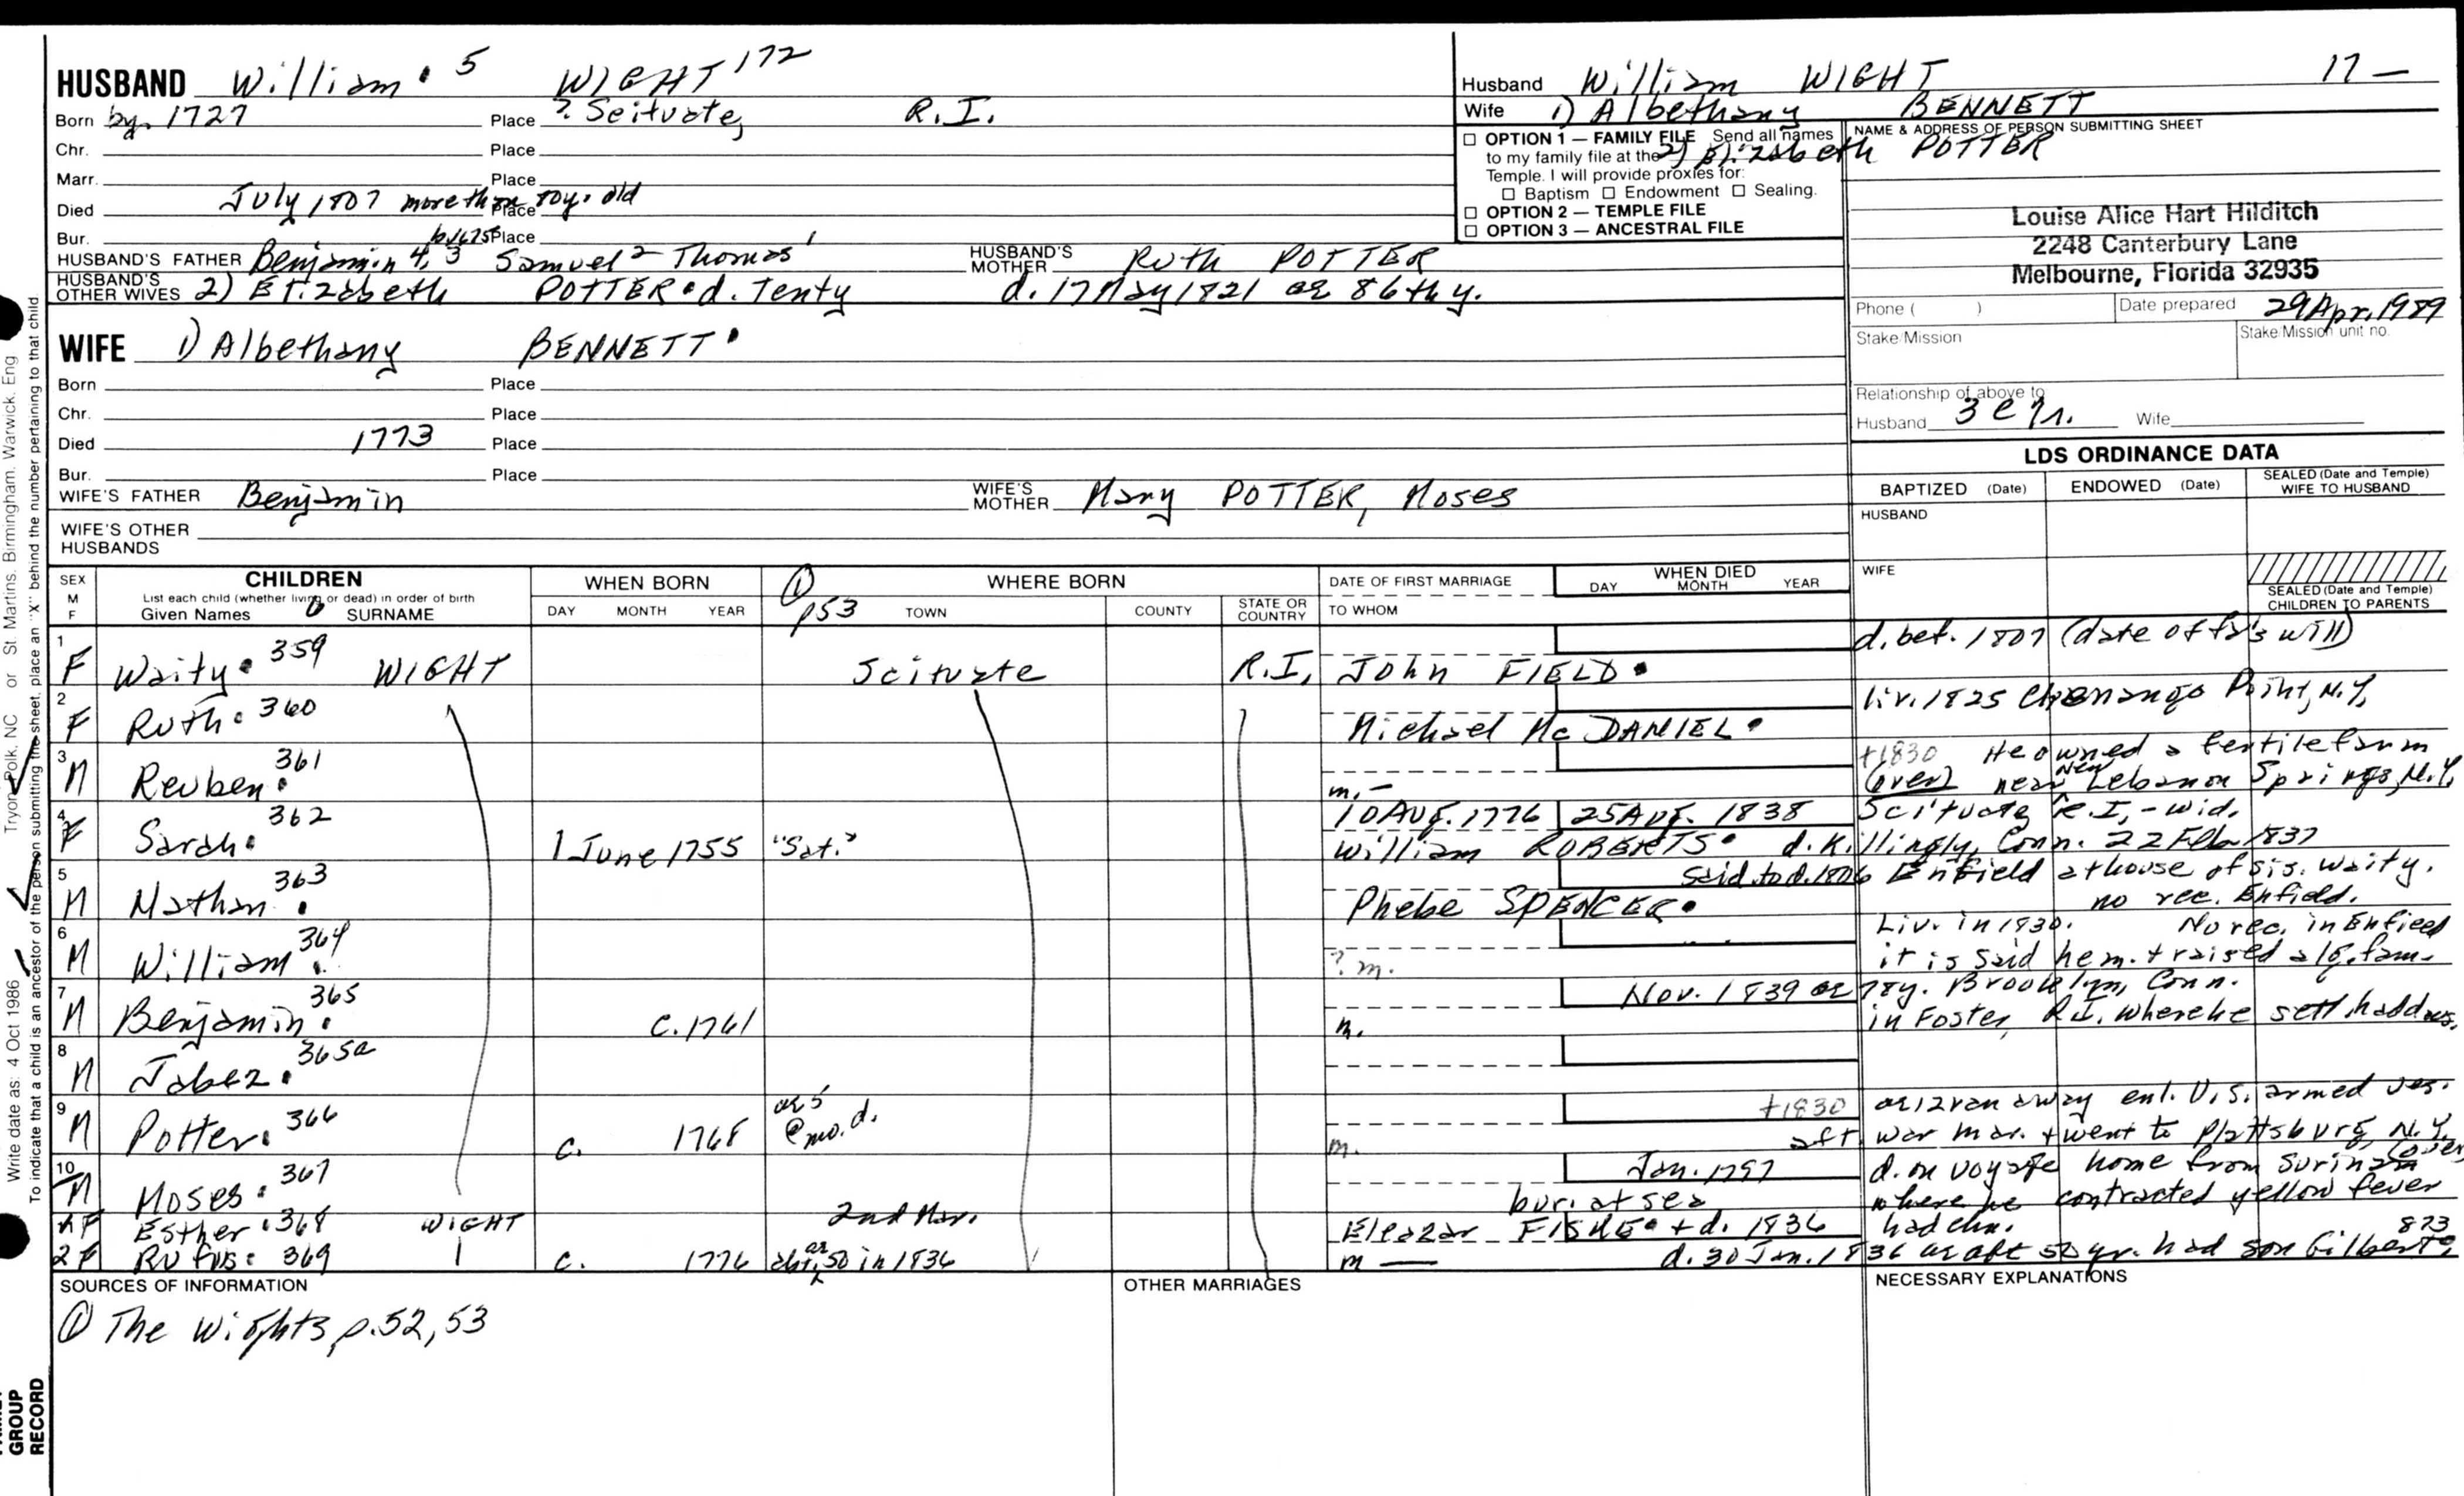 HUSBAND William • 5 WIGHT 172
Born by. 1727 Place ? Scituate, R.I.
Chr. Place
Marr. Place
Died July 1807 more than 80 y. old Place
Bur. Place
HUSBAND'S FATHER Benjamin 4, 3 Samuel 2 Thomas 1 HUSBAND'S MOTHER Ruth POTTER
HUSBAND'S OTHER WIVES 2) Elizabeth POTTER • d. Tenty d. 17 May 1821 ae 86th y.
WIFE 1) Albethany BENNETT •
Born Place
Chr. Place
Died 1773 Place
Bur. Place
WIFE'S FATHER Benjamin WIFE'S MOTHER Mary POTTER, Moses
WIFE'S OTHER HUSBANDS
Husband William WIGHT 17 —
Wife 1) Albethany BENNETT
2) Elizabeth POTTER
☐ OPTION 1 — FAMILY FILE Send all names
to my family file at the
Temple. I will provide proxies for:
☐ Baptism ☐ Endowment ☐ Sealing.
☐ OPTION 2 — TEMPLE FILE
☐ OPTION 3 — ANCESTRAL FILE
NAME & ADDRESS OF PERSON SUBMITTING SHEET
Louise Alice Hart Hilditch
2248 Canterbury Lane
Melbourne, Florida 32935
Phone ( ) Date prepared 29 Apr. 1989
Stake/Mission Stake/Mission unit no.
Relationship of above to
Husband 3 c Wife
LDS ORDINANCE DATA
BAPTIZED (Date) ENDOWED (Date) SEALED (Date and Temple) WIFE TO HUSBAND
HUSBAND
WIFE
SEALED (Date and Temple) CHILDREN TO PARENTS
SEX M F
CHILDREN
List each child (whether living or dead) in order of birth
Given Names SURNAME
WHEN BORN
DAY MONTH YEAR
① p53
WHERE BORN
TOWN COUNTY STATE OR COUNTRY
DATE OF FIRST MARRIAGE
TO WHOM
WHEN DIED
DAY MONTH YEAR
1 F Waity • 359 WIGHT Scituate R.I. John FIELD • d. bef. 1807 (date of fa's will)
2 F Ruth • 360 Michael Mc DANIEL • liv. 1825 Chenango Point, N.Y.
3 M Reuben • 361 m. – +1830 He owned a fertile farm
(over) near New Lebanon Springs, N.Y.
4 F Sarah • 362 1 June 1755 "Sat." 10 Aug. 1776 25 Aug. 1838 Scituate R.I. – wid.
William ROBERTS • d. Killingly, Conn. 22 Feb. 1837
5 M Nathan • 363 said to d. 1806 Enfield at house of sis. Waity.
Phebe SPENCER • no rec. Enfield.
6 M William • 364 ? m. Liv. in 1830. No rec. in Enfield
it is said he m. + raised a lg. fam.
7 M Benjamin • 365 c. 1761 m. Nov. 1839 ae 78y. Brooklyn, Conn.
in Foster, R.I. where he sett. had
8 M Jabez • 365a
9 M Potter • 366 c. 1768 ae 5 @ mo. d. m. +1830 ae 12 ran away enl. U.S. armed ves.
aft. war mar. + went to Plattsburg, N.Y. (over)
10 M Moses • 367 Jan. 1797 d. on voyage home from Surinam
bur. at sea where he contracted yellow fever
F Esther • 368 WIGHT 2nd Mar. Eleazar FISKE • + d. 1836 had chn.
2 Rufus • 369 c. 1776 abt. ae 50 in 1836 m — d. 30 Jan. 1836 ae abt 50 yr. had son Gilbert • 873
SOURCES OF INFORMATION
① The Wights, p. 52, 53
OTHER MARRIAGES
NECESSARY EXPLANATIONS
GROUP
RECORD
Write date as: 4 Oct 1986 Tryon, Polk, NC or St. Martins, Birmingham, Warwick, Eng
To indicate that a child is an ancestor of the person submitting the sheet, place an "X" behind the number pertaining to that child